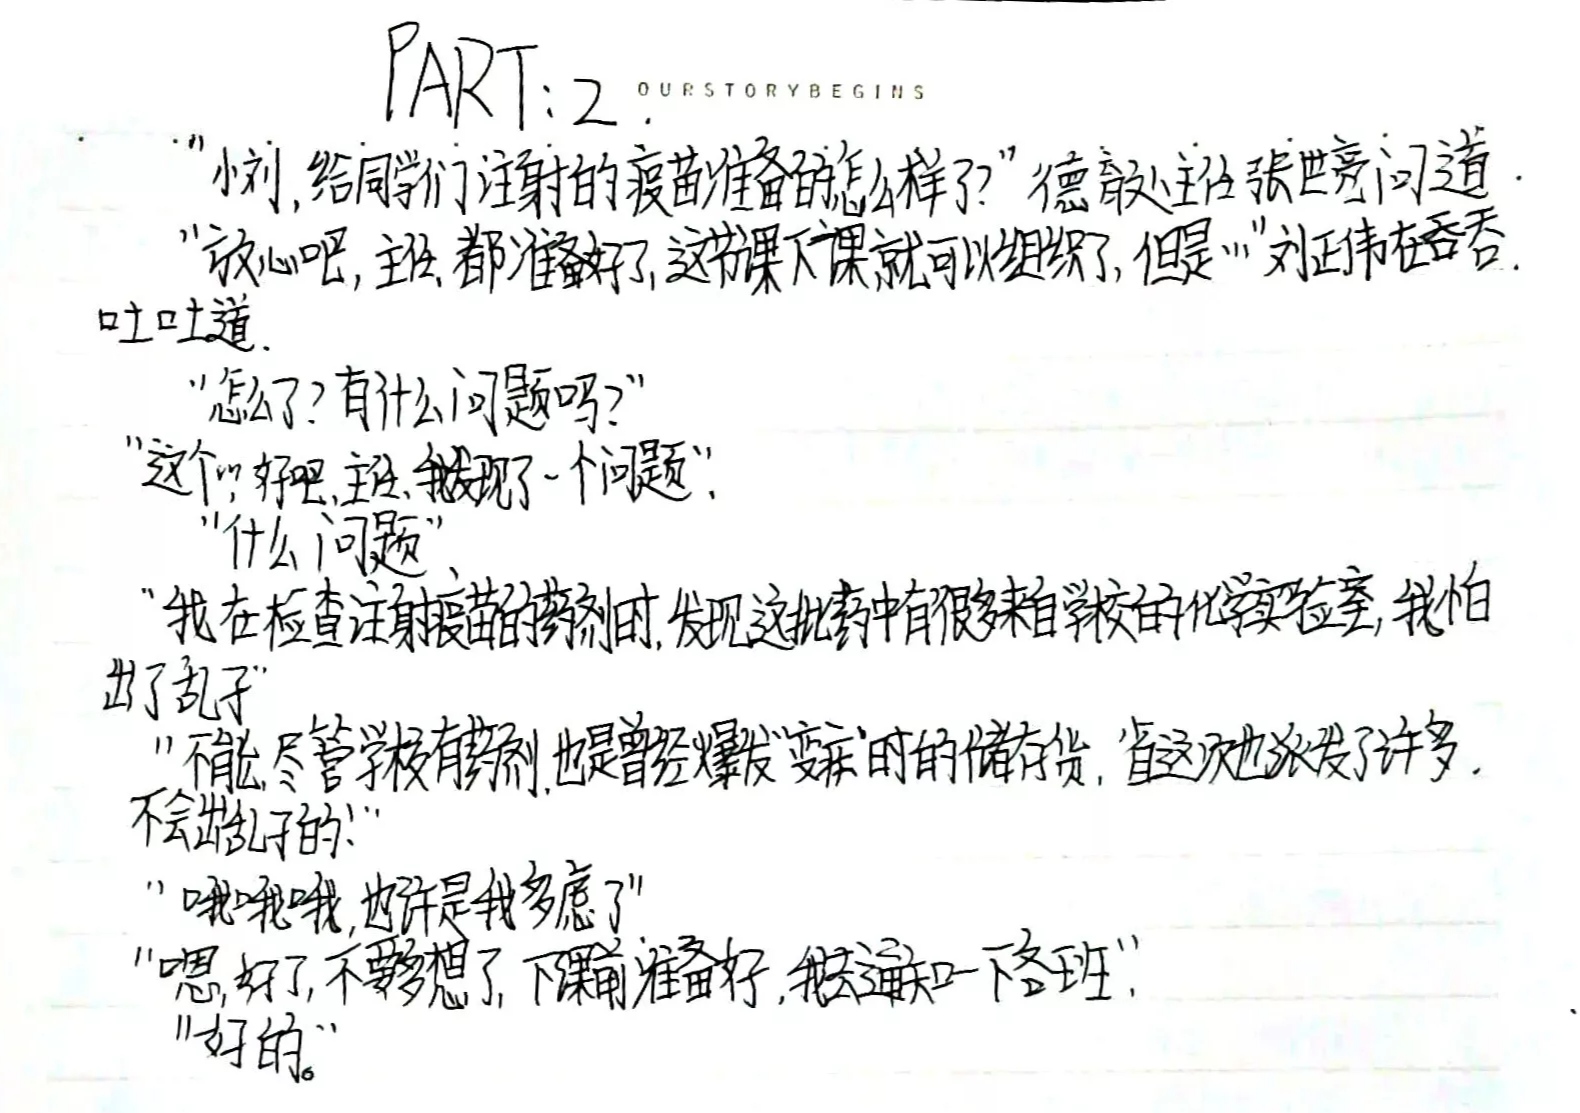 PART:2. OURSTORYBEGINS
"小刘,给同学们注射的疫苗准备的怎么样了?"德育处主任张世亮问道.
"放心吧,主任、都准备好了,这节课下课就可以组织了,但是…"刘正伟在吞吞
吐吐道.
"怎么了?有什么问题吗?"
"这个…好吧、主任、我发现了一个问题".
"什么问题"
"我在检查注射疫苗的药剂时,发现这批药中有很多来自学校的化学实验室,我怕
出了乱子"
"不能,尽管学校有药剂,也是曾经爆发"变疾"时的储存货,省这次也派发了许多.
不会出乱子的!"
"哦哦哦,也许是我多虑了"
"嗯,好了,不要多想了,下课前准备好,我去通知一下各班".
"好的。"